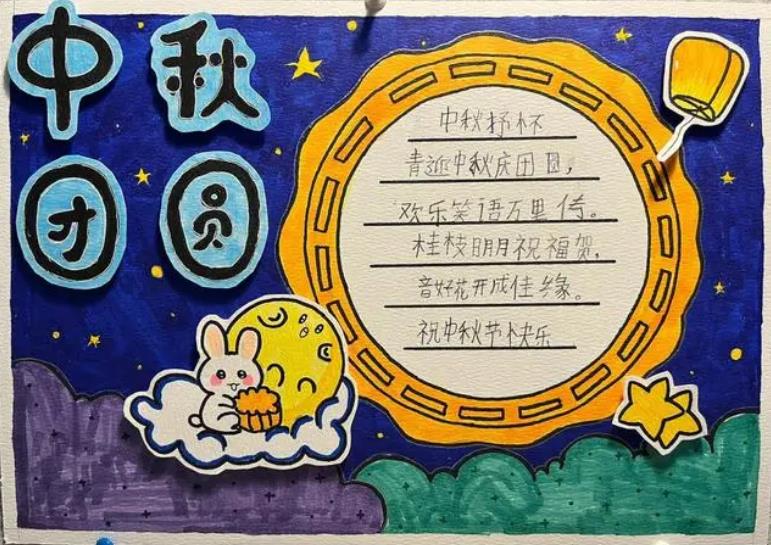 中秋
团圆
中秋抒杯
青迎中秋庆团圆，
欢乐笑语万里传。
桂枝明月祝福贺，
音好花开成佳缘。
祝中秋节快乐